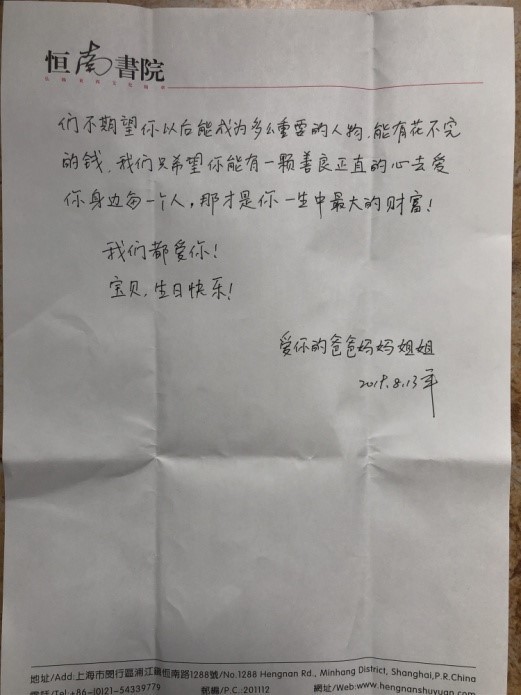 恒南書院
们不期望你以后能成为多么重要的人物,能有花不完
的钱,我们只希望你能有一颗善良正直的心去爱
你身边每一个人,那才是你一生中最大的财富!
我们都爱你!
宝贝,生日快乐!
爱你的爸爸妈妈姐姐
2019.8.13年
地址/Add:上海市閔行區浦江鎮恒南路1288號/No.1288 Hengnan Rd., Minhang District, Shanghai,P.R.China
電話/Tel:+86-(0)21-54339779 郵編/P.C.:201112 網址/Web:www.hengnanshuyuan.com